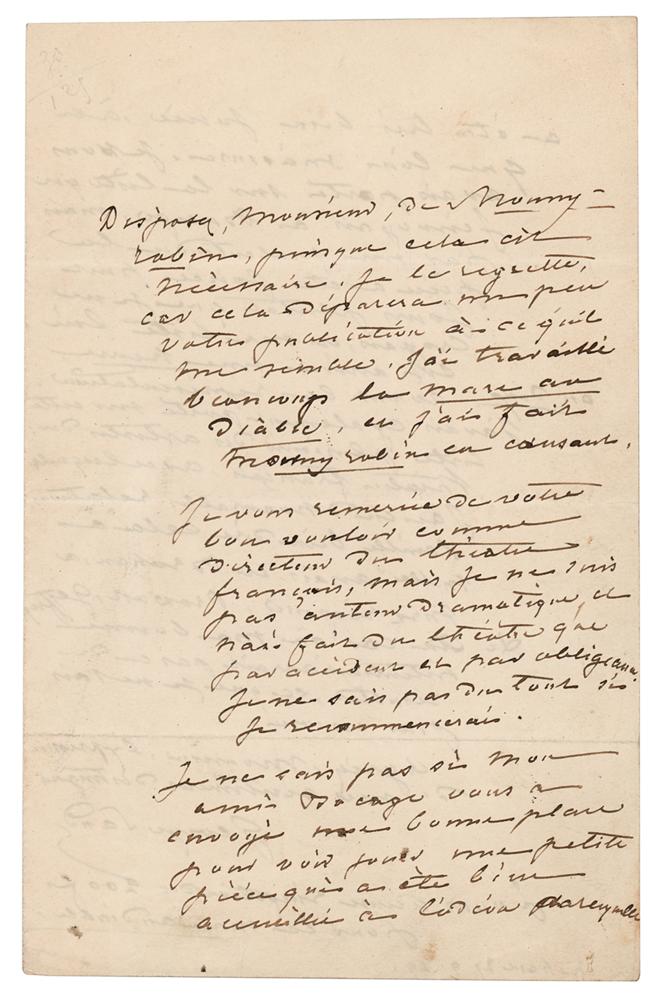 Disposez, Monsieur, de Mouny-
robin, puisque cela est
nécessaire. Je le regrette,
car cela déparera un peu
votre publication à ce qu'il
me semble. J'ai travaillé
beaucoup la mare au
Diable, et j'ai fait
mouny robin en causant.
Je vous remercie de votre
bon vouloir comme
directeur du théâtre
français, mais je ne suis
pas auteur dramatique, et
n'ai fait du théâtre que
par accident et par obligeance.
Je ne sais pas du tout si
Je recommencerai.
Je ne sais pas si mon
ami Bocage vous a
envoyé une bonne place
pour voir jouer une petite
pièce qui a été bien
accueillie à l'odéon